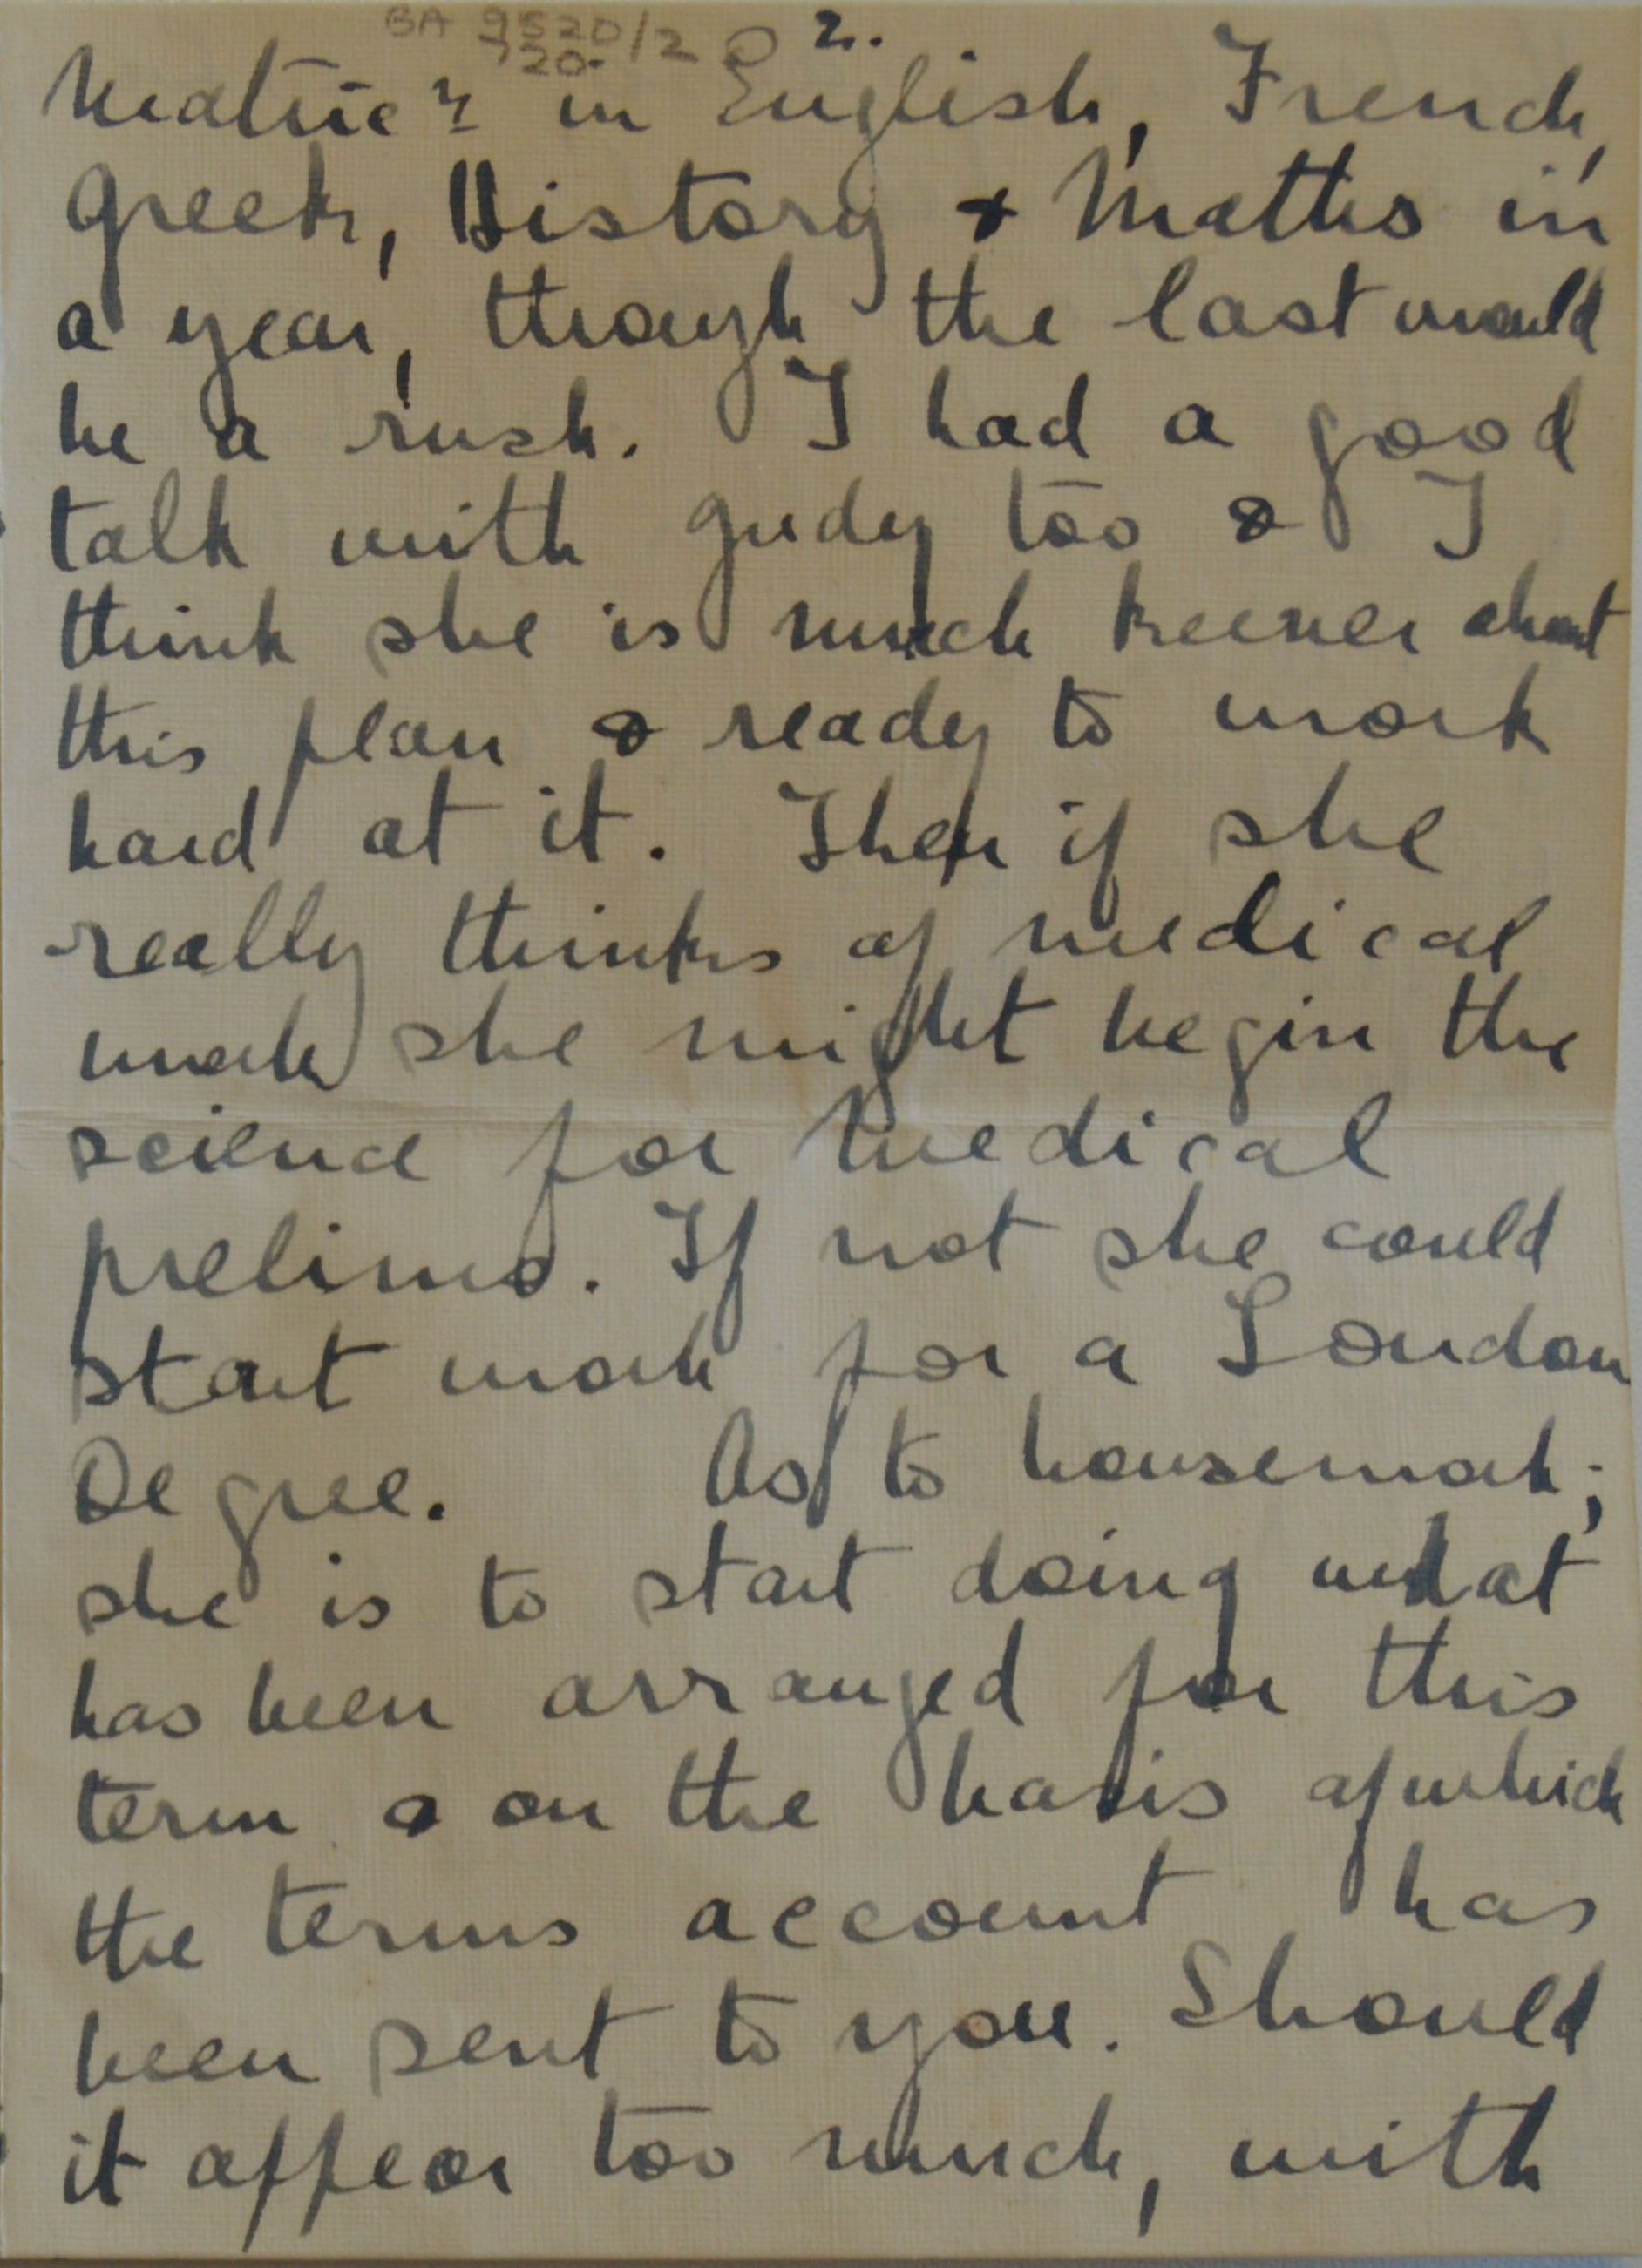 BA 9520/2 P 2.
720.
Matric? in English, French,
Greek, History & Maths in
a year, though the last would
be a rush. I had a good
talk with Judy too & I
think she is much keener about
this plan & ready to work
hard at it. Then if she
really thinks of medical
work she might begin the
science for medical
prelims. If not she could
start work for a London
Degree. As to housework;
she is to start doing what
has been arranged for this
term & on the basis of which
the terms account has
been sent to you. Should
it appear too much, with